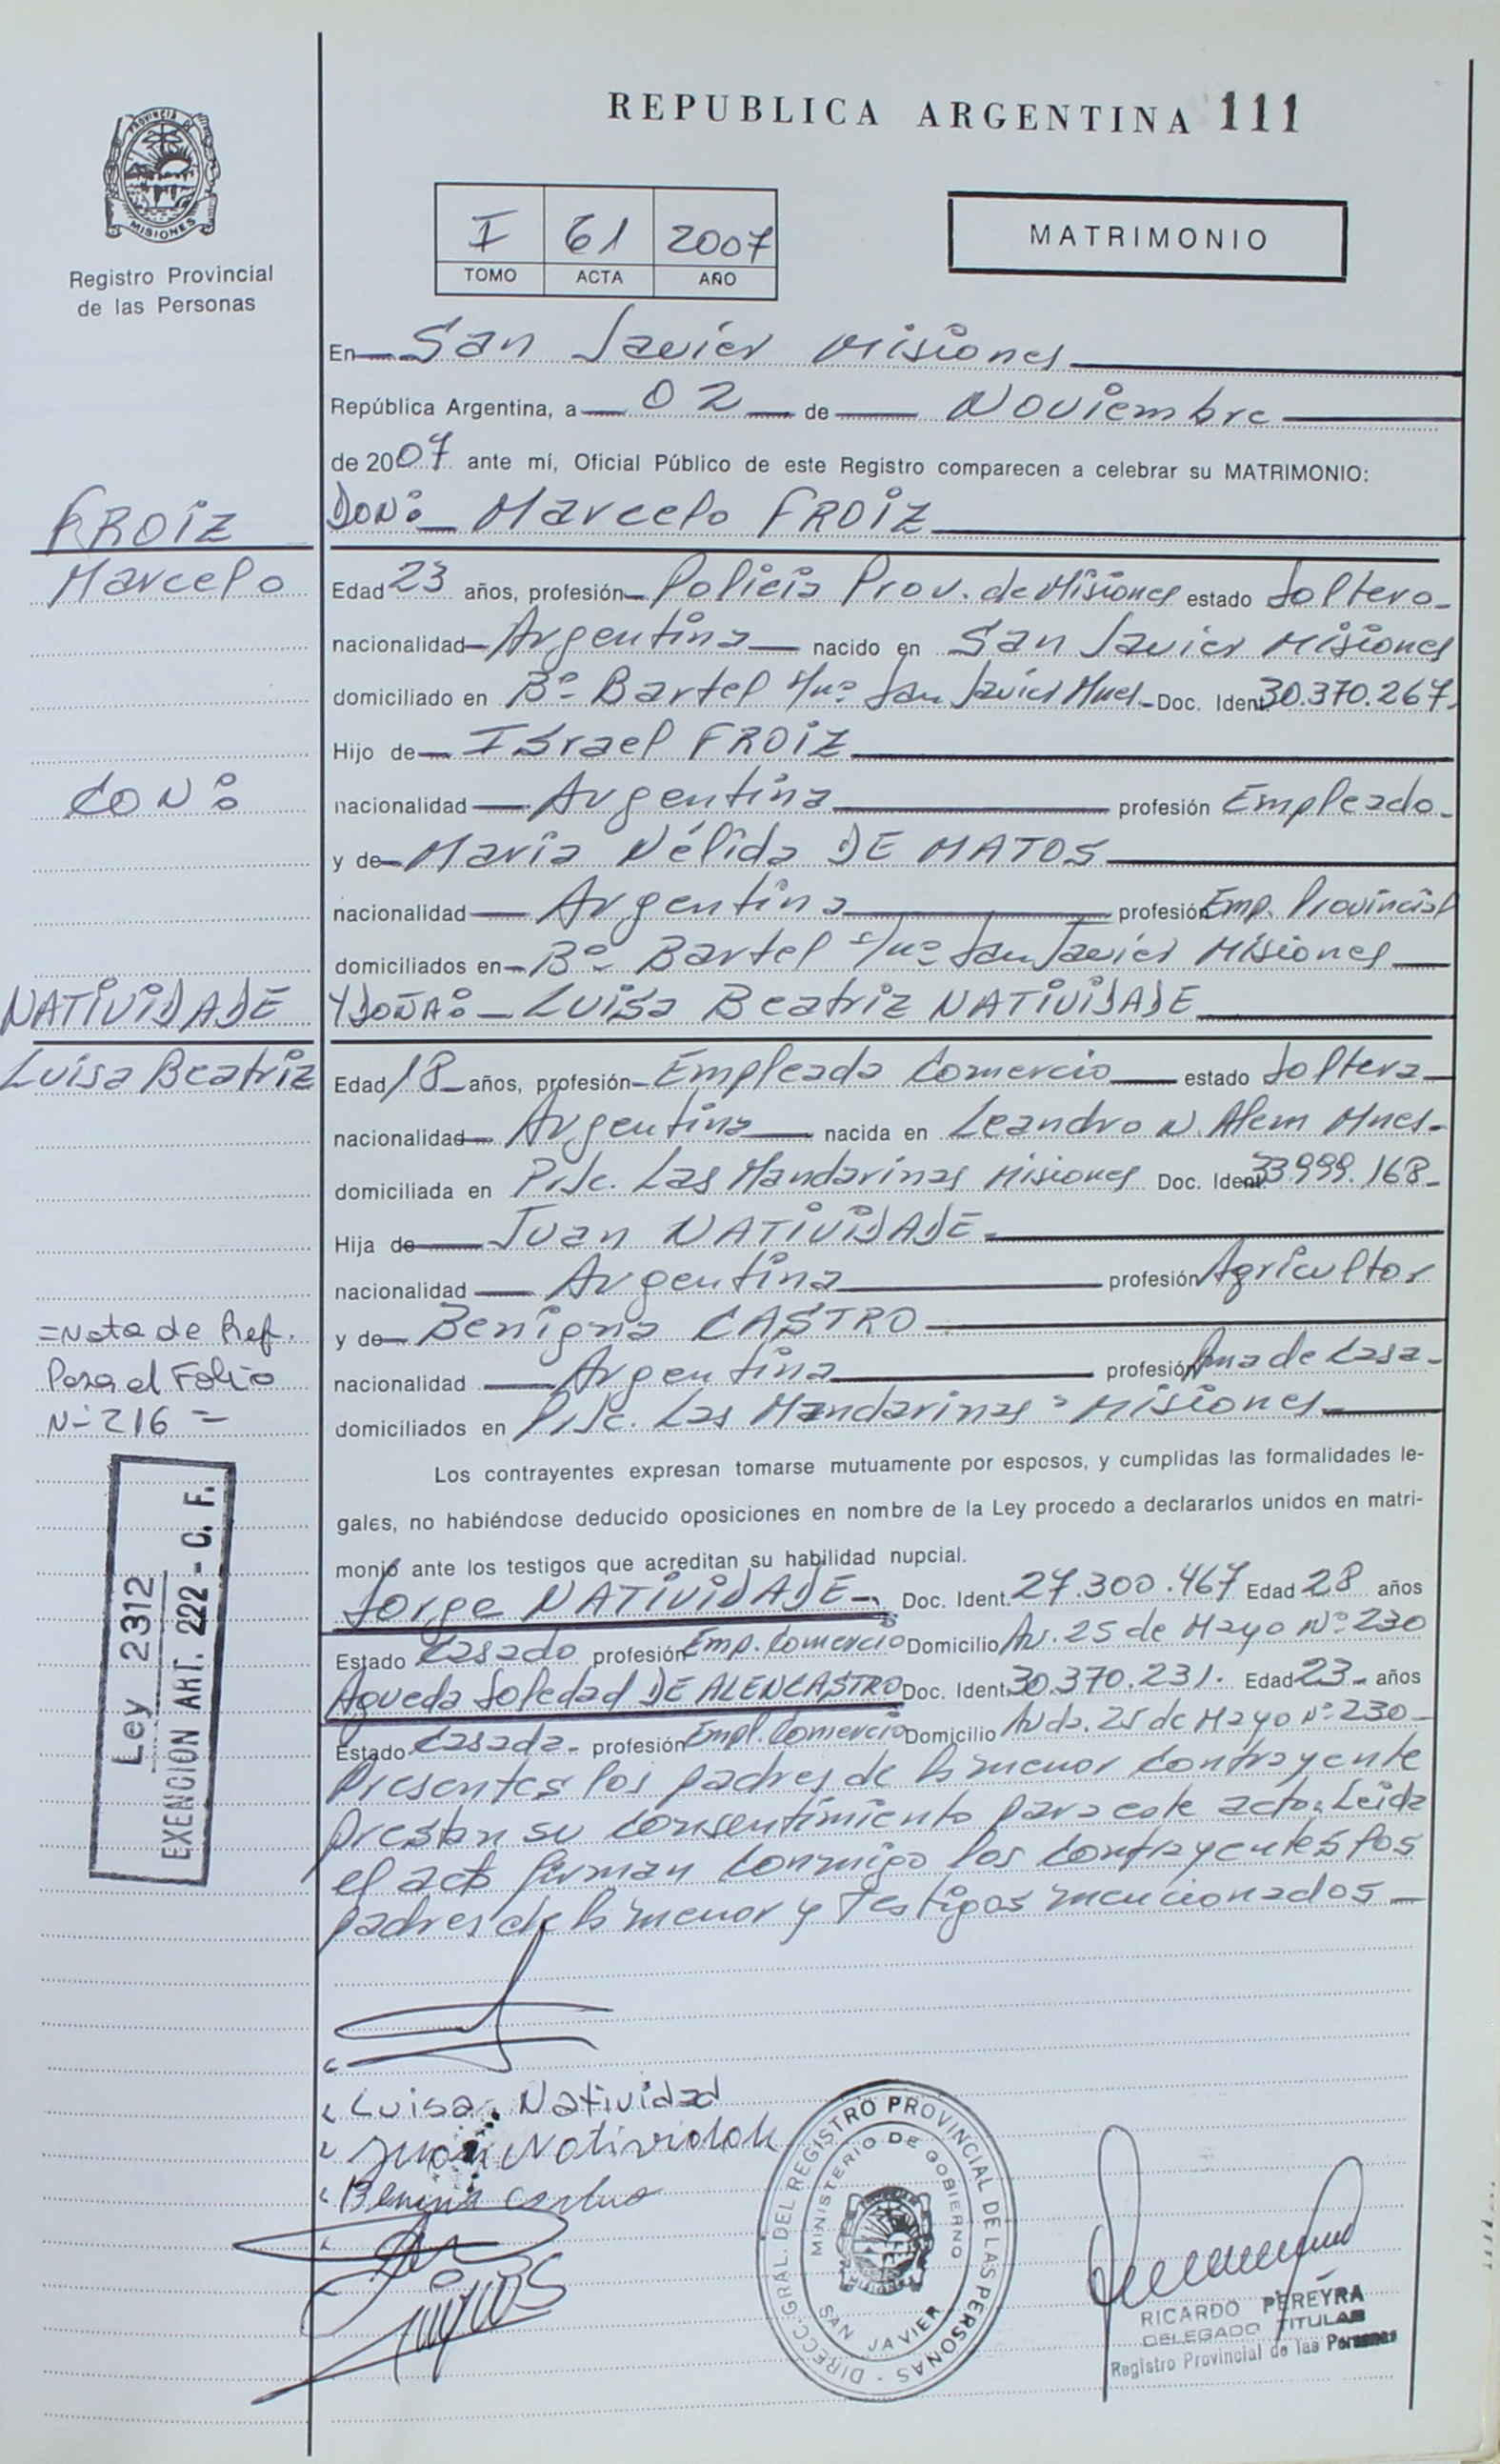 REPUBLICA ARGENTINA 111
PROVINCIA
MISIONES
Registro Provincial
de las Personas
I 61 2007
TOMO ACTA AÑO
MATRIMONIO
En San Javier Misiones
República Argentina, a 02 de Noviembre
de 2007 ante mí, Oficial Público de este Registro comparecen a celebrar su MATRIMONIO:
FROIZ
DON: Marcelo FROIZ
Marcelo
Edad 23 años, profesión Policia Prov. de Misiones estado Soltero
nacionalidad Argentina nacido en San Javier Misiones
domiciliado en Bº Bartel s/nº San Javier Mnes. Doc. Ident. 30.370.267.
Hijo de Israel FROIZ
CON:
nacionalidad Argentina profesión Empleado
y de Maria Nélida DE MATOS
nacionalidad Argentina profesión Emp. Provincial
domiciliados en Bº Bartel s/nº San Javier Misiones
NATIVIDADE
Y DOÑA: Luisa Beatriz NATIVIDADE
Luisa Beatriz
Edad 18 años, profesión Empleada Comercio estado Soltera
nacionalidad Argentina nacida en Leandro N. Alem Mnes.
domiciliada en Pje. Las Mandarinas Misiones Doc. Ident. 33.999.168
Hija de Juan NATIVIDADE
nacionalidad Argentina profesión Agricultor
=Nota de Ref.
y de Benigna CASTRO
Pasa al Folio
nacionalidad Argentina profesión Ama de Casa
Nº 216 =
domiciliados en Pje. Las Mandarinas - Misiones
Los contrayentes expresan tomarse mutuamente por esposos, y cumplidas las formalidades le-
gales, no habiéndose deducido oposiciones en nombre de la Ley procedo a declararlos unidos en matri-
monio ante los testigos que acreditan su habilidad nupcial.
Ley 2312
EXENCION ART. 222 - C. F.
Jorge NATIVIDADE Doc. Ident. 27.300.467 Edad 28 años
Estado Casado profesión Emp. Comercio Domicilio Av. 25 de Mayo Nº 230
Agueda Soledad DE ALENCASTRO Doc. Ident. 30.370.231. Edad 23 años
Estado Casada profesión Empl. Comercio Domicilio Avda. 25 de Mayo Nº 230
Presentes los padres de la menor contrayente
prestan su consentimiento para este acto. Leida
el acta firman conmigo los contrayentes los
padres de la menor y testigos mencionados
Luisa Natividad
Juan Natividade
Benigna Castro
DIRECC. GRAL. DEL REGISTRO PROVINCIAL DE LAS PERSONAS
MINISTERIO DE GOBIERNO
SAN JAVIER
RICARDO PEREYRA
DELEGADO TITULAR
Registro Provincial de las Personas